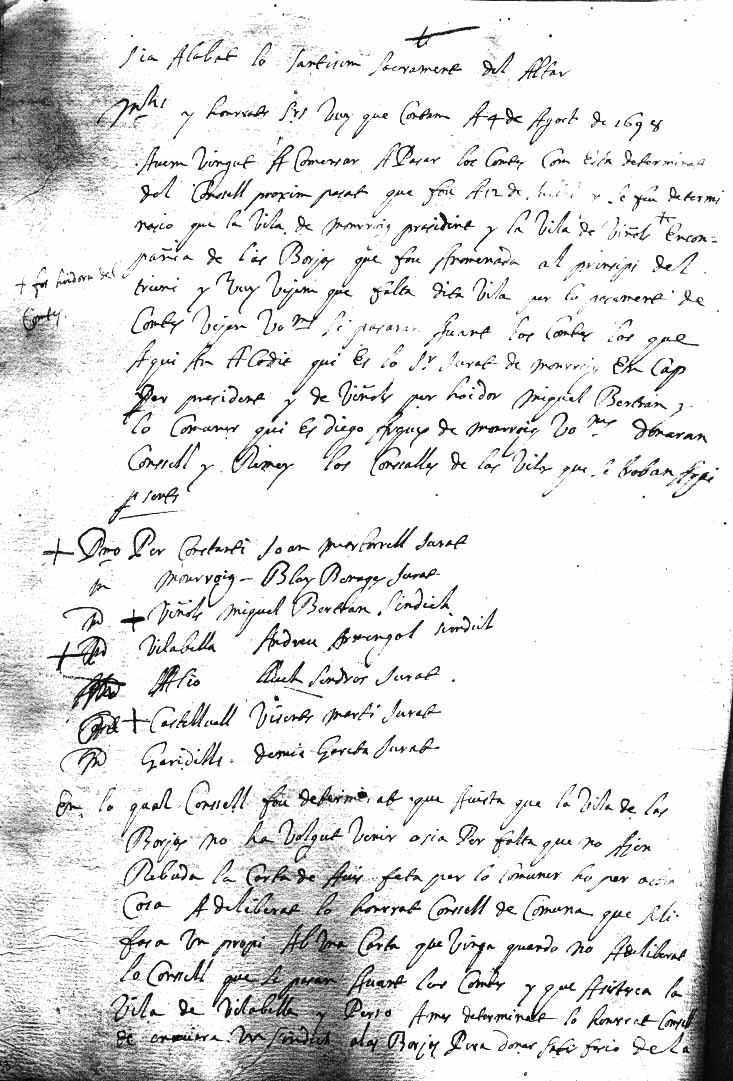 Sia Alabat lo santisim sacrament del Altar
y honrrats Srs Vuy que Contam A 4 de Agost de 1698
Avem Vingut A Comensar A Pasar los Contes Com esta determinat
del Consell proxim pasat que fou A 12 de y se feu determi
nasio que la Vila de Monrroig president y la Vila de Viñols + Encon=
pañia de las Borjas que fou al prinsipi del
trieni y Vuy Vejem que falta dita Vila per lo pasament de
+ for hoidora del
Contes
Contes Vejan Vo ms si pasaran Avant los Contes los que
Aqui An Acodit qui Es lo Sr Jurat de Monrroig Em Cap
Per president y de Viñols per hoidor Miguel Bertran y
lo Comuner qui Es diego de Monrroig Vo ms donaran
Conssell y los Conssalles de las Viles que se troban Aqui
psents
+ Pmo Per Constanti Joan Jurat
m Monrroig - Blay Jurat
m + Viñols Miguel Bertran Sindich
+ m Vilabella Andreu Armengol sindich
Alio Lluch Jurat .
+ Castellvell Visents Marti Jurat
m Garidells . demia Jurat
En lo qual Conssell fou determinat que Avista que la Vila de las
Borjas no ha Volgut Venir osia Per falta que no Ajen
Rebuda la Carta de Avis feta per lo Comuner ho per
Cosa A deliberat lo honrrat Conssell de Comuna que seli
fasa Un propi Ab Una Carta que Vinga quando no A deliberat
lo Conssell que se pasen Avant los Contes y que la
Vila de Vilabella y Perso Ames determinat lo honrrat Consell
de Un sindich a las Borjas Pera donar de la